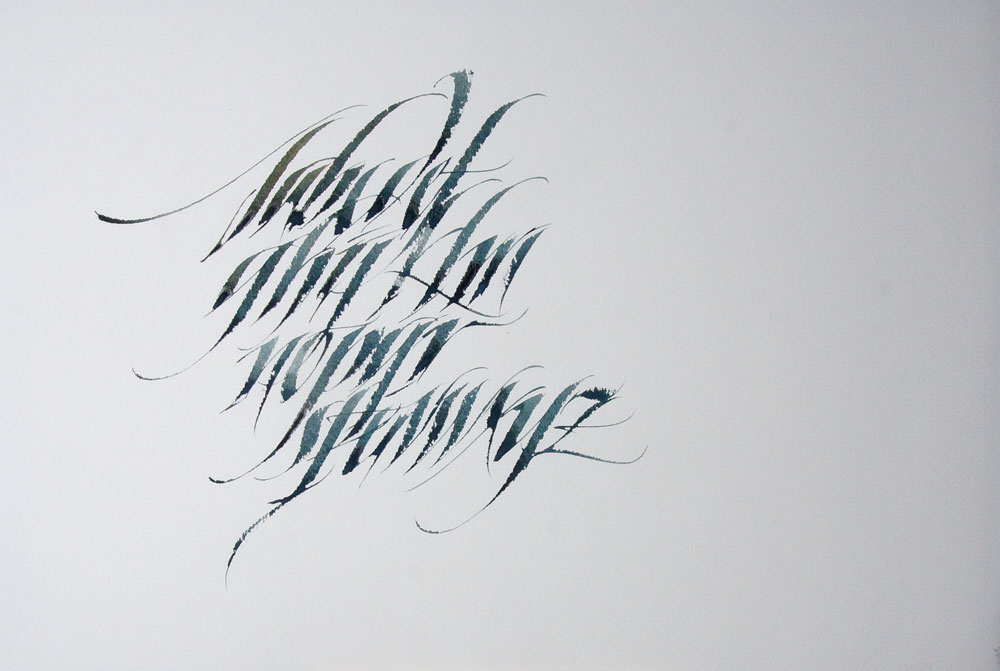 abcdef
ghijklm
nopqr
stuvwxyz